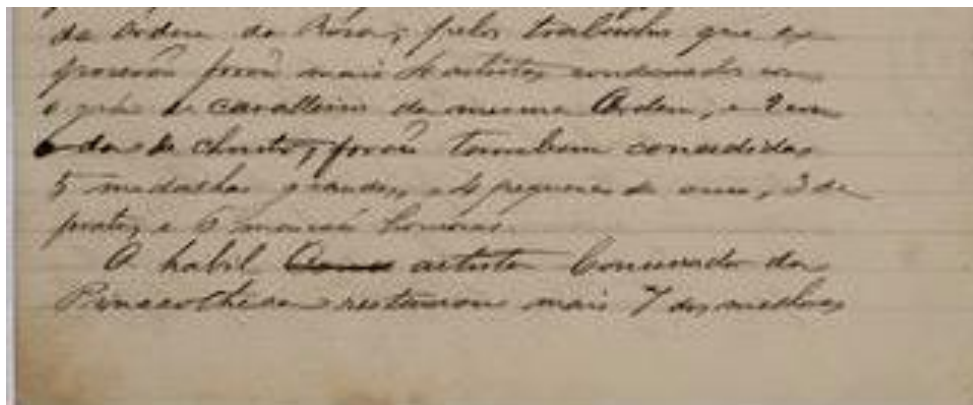 da Ordem da Rosa; pelos trabalhos que ex
poserão forão mais 4 artistas condecorados com
o gráo de cavalleiro da mesma Ordem, e 2 com
o da de Christo; forão tambem concedidas
5 medalhas grandes, e 4 pequenas de ouro, 3 de
prata, e 6 menções honrosas.
O habil artista Conservador da
Pinacotheca restaurou mais 7 dos melhores